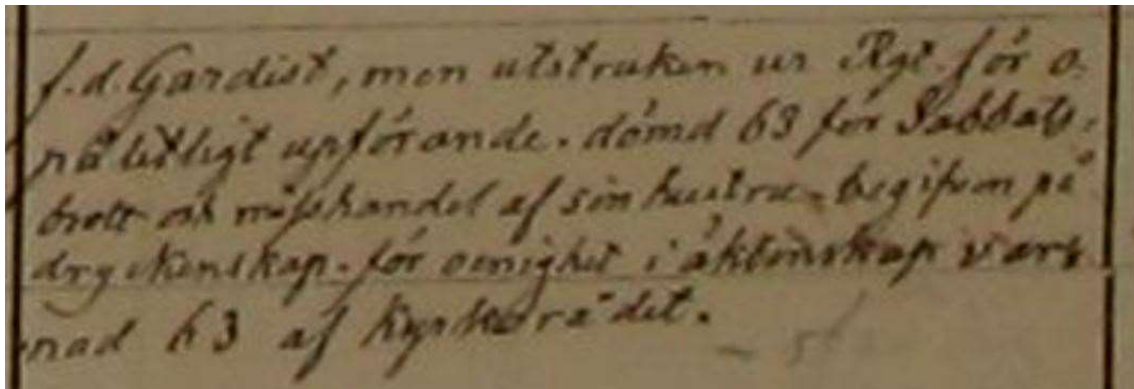 f.d. Gardist, men utstruken ur Rgt. för o-
nåletligt upförande. dömd 63 för Sabbats-
brott och misshandel af sin hustru. begifven på
dryckenskap. för oenighet i äktenskap vars
nad 63 af Kyrkorådet.